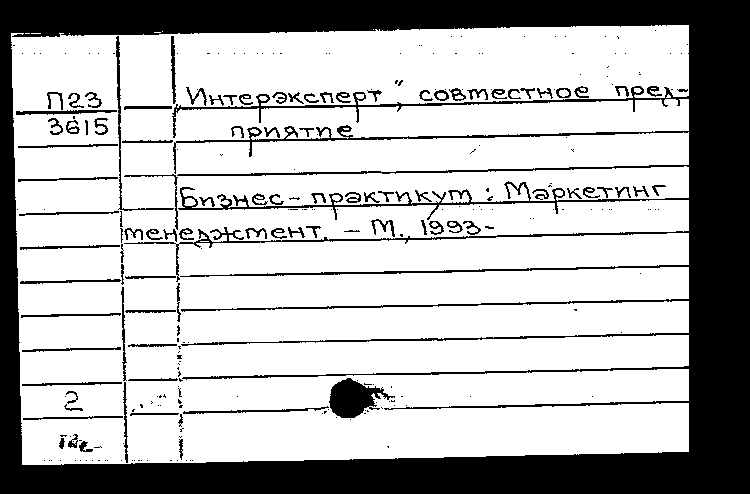 П23
3615
„Интерэксперт“, совместное пред-
приятие
Бизнес-практикум : Маркетинг
менеджмент. – М., 1993-
2